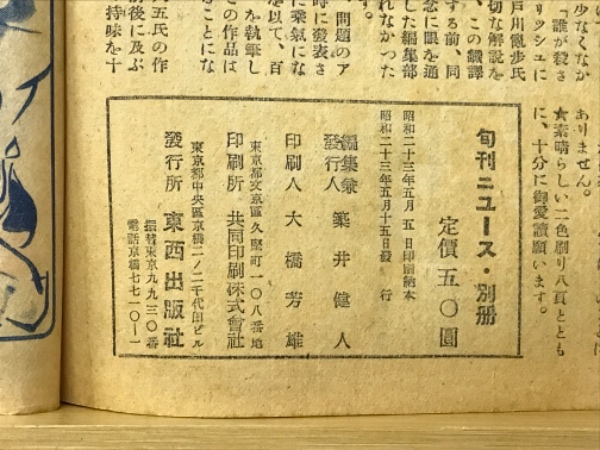 少なくなか
「誰が殺さ
リッシユに
戸川亂歩氏
切な解説を
、この飜譯
する前、同
念に眼を通
した編集部
れなかつた
す。
問題のア
時に發表さ
に乘氣にな
を以て、百
を執筆し
の作品は
ることにな
五氏の作
前後に及ぶ
持味を十
ありません。
★素晴らしい二色刷り八頁ととも
に、十分に御愛讀願います。
旬刊ニュース・別册
定價五〇圓
昭和二十三年五月 五 日印刷納本
昭和二十三年五月十五日發 行
編集兼
發行人 築井健人
印刷人 大橋芳雄
東京都文京區久堅町一〇八番地
印刷所 共同印刷株式會社
東京都中央區京橋二ノ二千代田ビル
發行所 東西出版社
振替東京九九三〇番
電話京橋七七一〇—一